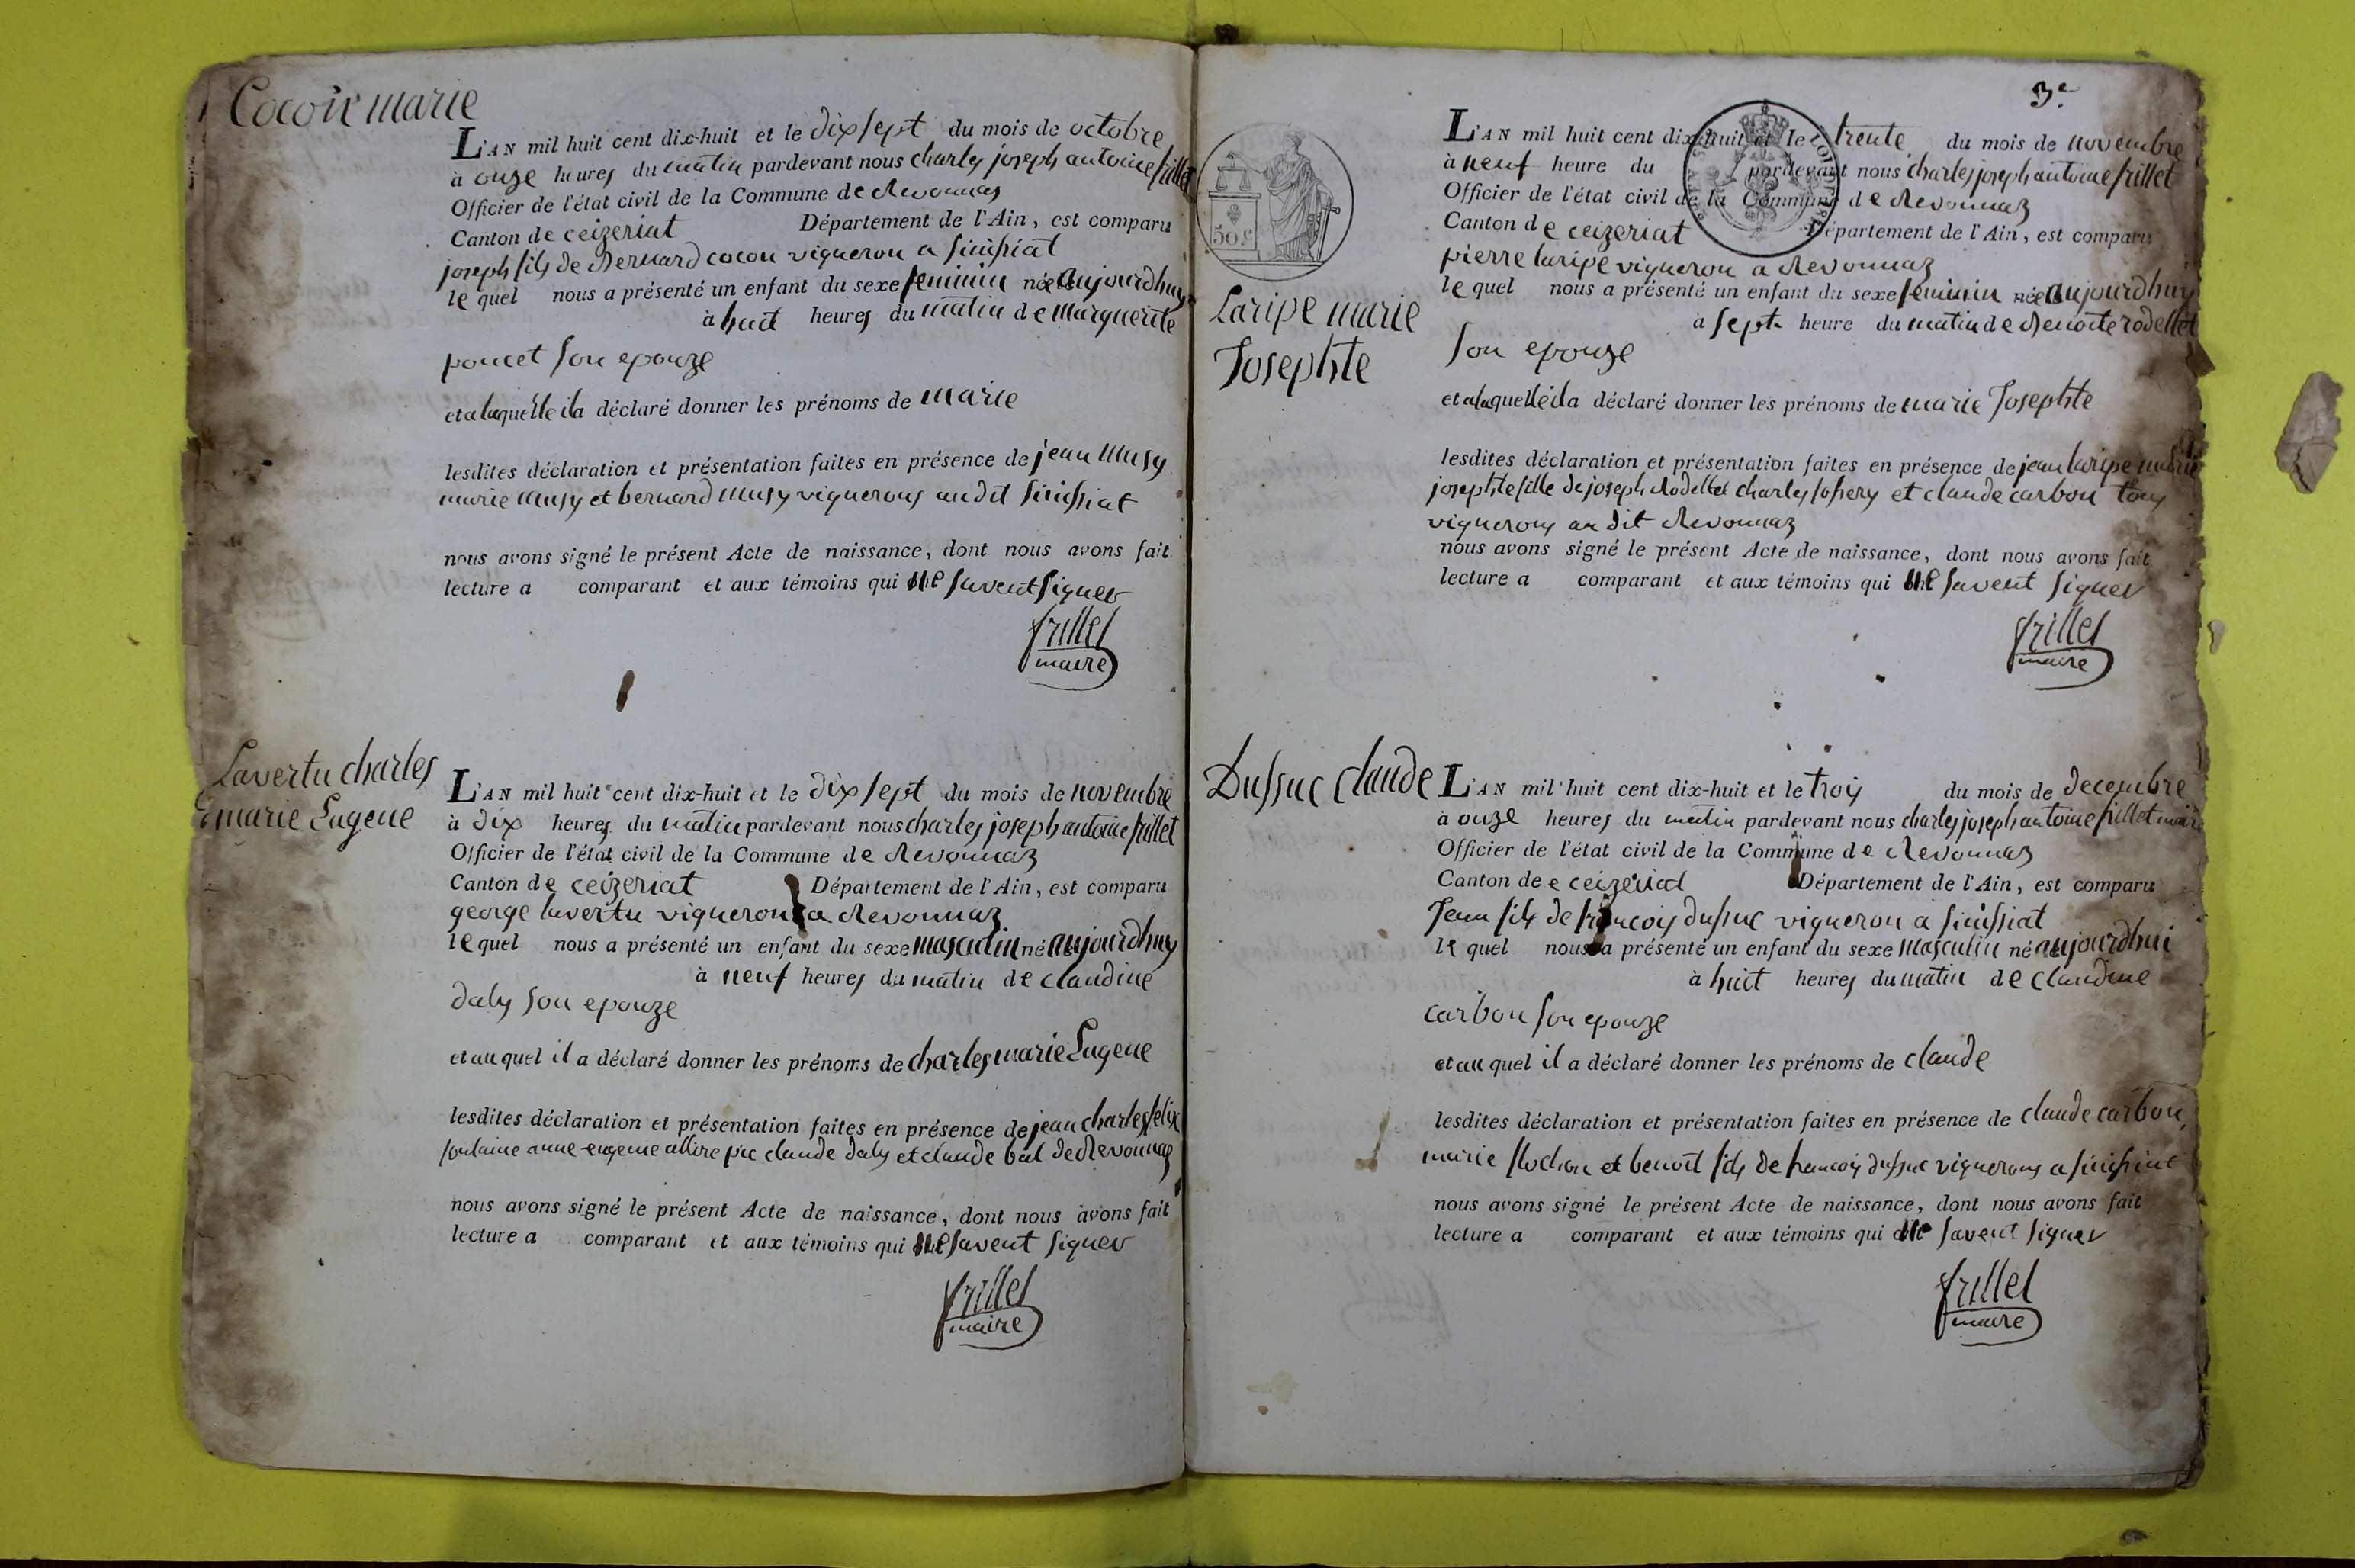 Cocon marie
L'AN mil huit cent dix-huit et le dix sept du mois de octobre
à onze heures du matin pardevant nous charles joseph antoine frillet
Officier de l'état civil de la Commune de Revonnas
Canton de ceizeriat Département de l'Ain, est comparu
joseph fils de Bernard cocon vigneron a sinissiat
lequel nous a présenté un enfant du sexe feminin née aujourdhuy
à huit heures du matin de Marguerite
poncet son epouze
et a laquelle il a déclaré donner les prénoms de marie
lesdites déclaration et présentation faites en présence de jean Musy
marie Musy et bernard Musy vignerons audit sinissiat
nous avons signé le présent Acte de naissance, dont nous avons fait
lecture a comparant et aux témoins qui ne savent signer
frillet
maire
Lavertu charles
marie Eugene
L'AN mil huit cent dix-huit et le dix sept du mois de novembre
à dix heures du matin pardevant nous charles joseph antoine frillet
Officier de l'état civil de la Commune de Revonnaz
Canton de ceizeriat Département de l'Ain, est comparu
george lavertu vigneron a Revonnaz
lequel nous a présenté un enfant du sexe masculin né aujourdhuy
à neuf heures du matin de claudine
daly son epouze
et au quel il a déclaré donner les prénoms de charles marie Eugene
lesdites déclaration et présentation faites en présence de jean charles felix
fontaine anne eugenie claude daly et claude bal de Revonnaz
nous avons signé le présent Acte de naissance, dont nous avons fait
lecture a comparant et aux témoins qui ne savent signer
frillet
maire
3e
50 c
Laripe marie
Josephte
L'AN mil huit cent dix-huit et le trente du mois de novembre
à neuf heure du pardevant nous charles joseph antoine frillet
Officier de l'état civil de la Commune de Revonnaz
Canton de ceizeriat Département de l'Ain, est comparu
pierre laripe vigneron a Revonnaz
lequel nous a présenté un enfant du sexe feminin née aujourdhuy
à sept heure du matin de Benoite rodellet
son epouze
et a laquelle il a déclaré donner les prénoms de marie Josephte
lesdites déclaration et présentation faites en présence de jean laripe marie
josephte fille de joseph Rodellet charles et claude carbon tous
vignerons au dit Revonnaz
nous avons signé le présent Acte de naissance, dont nous avons fait
lecture a comparant et aux témoins qui ne savent signer
frillet
maire
Dussuc claude
L'AN mil huit cent dix-huit et le troy du mois de decembre
à onze heures du matin pardevant nous charles joseph antoine frillet maire
Officier de l'état civil de la Commune de Revonnaz
Canton de ceizeriat Département de l'Ain, est comparu
Jean fils de francois dussuc vigneron a sinissiat
lequel nous a présenté un enfant du sexe masculin né aujourdhui
à huit heures du matin de claudine
carbon son epouze
et au quel il a déclaré donner les prénoms de claude
lesdites déclaration et présentation faites en présence de claude carbon,
marie et benoit fils de francois dussuc vignerons a sinissiat
nous avons signé le présent Acte de naissance, dont nous avons fait
lecture a comparant et aux témoins qui ne savent signer
frillet
maire